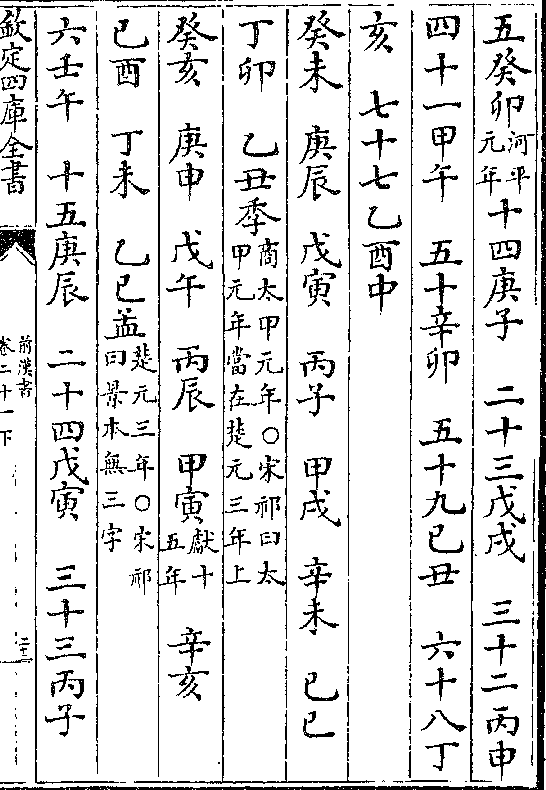 五癸卯河平元年十四庚子 二十三戊戌 三十二丙申
四十一甲午 五十辛卯 五十九己丑 六十八丁
亥 七十七乙酉中
癸未 庚辰 戊寅 丙子 甲戌 辛未 己巳
丁卯 乙丑季商太甲元年○宋祁曰太甲元年當在楚元三年上
癸亥 庚申 戊午 丙辰 甲寅獻十五年 辛亥
己酉 丁未 乙巳孟楚元三年○宋祁曰景本無三字
六壬午 十五庚辰 二十四戊寅 三十三丙子
欽定四庫全書
前漢書
卷二十一下